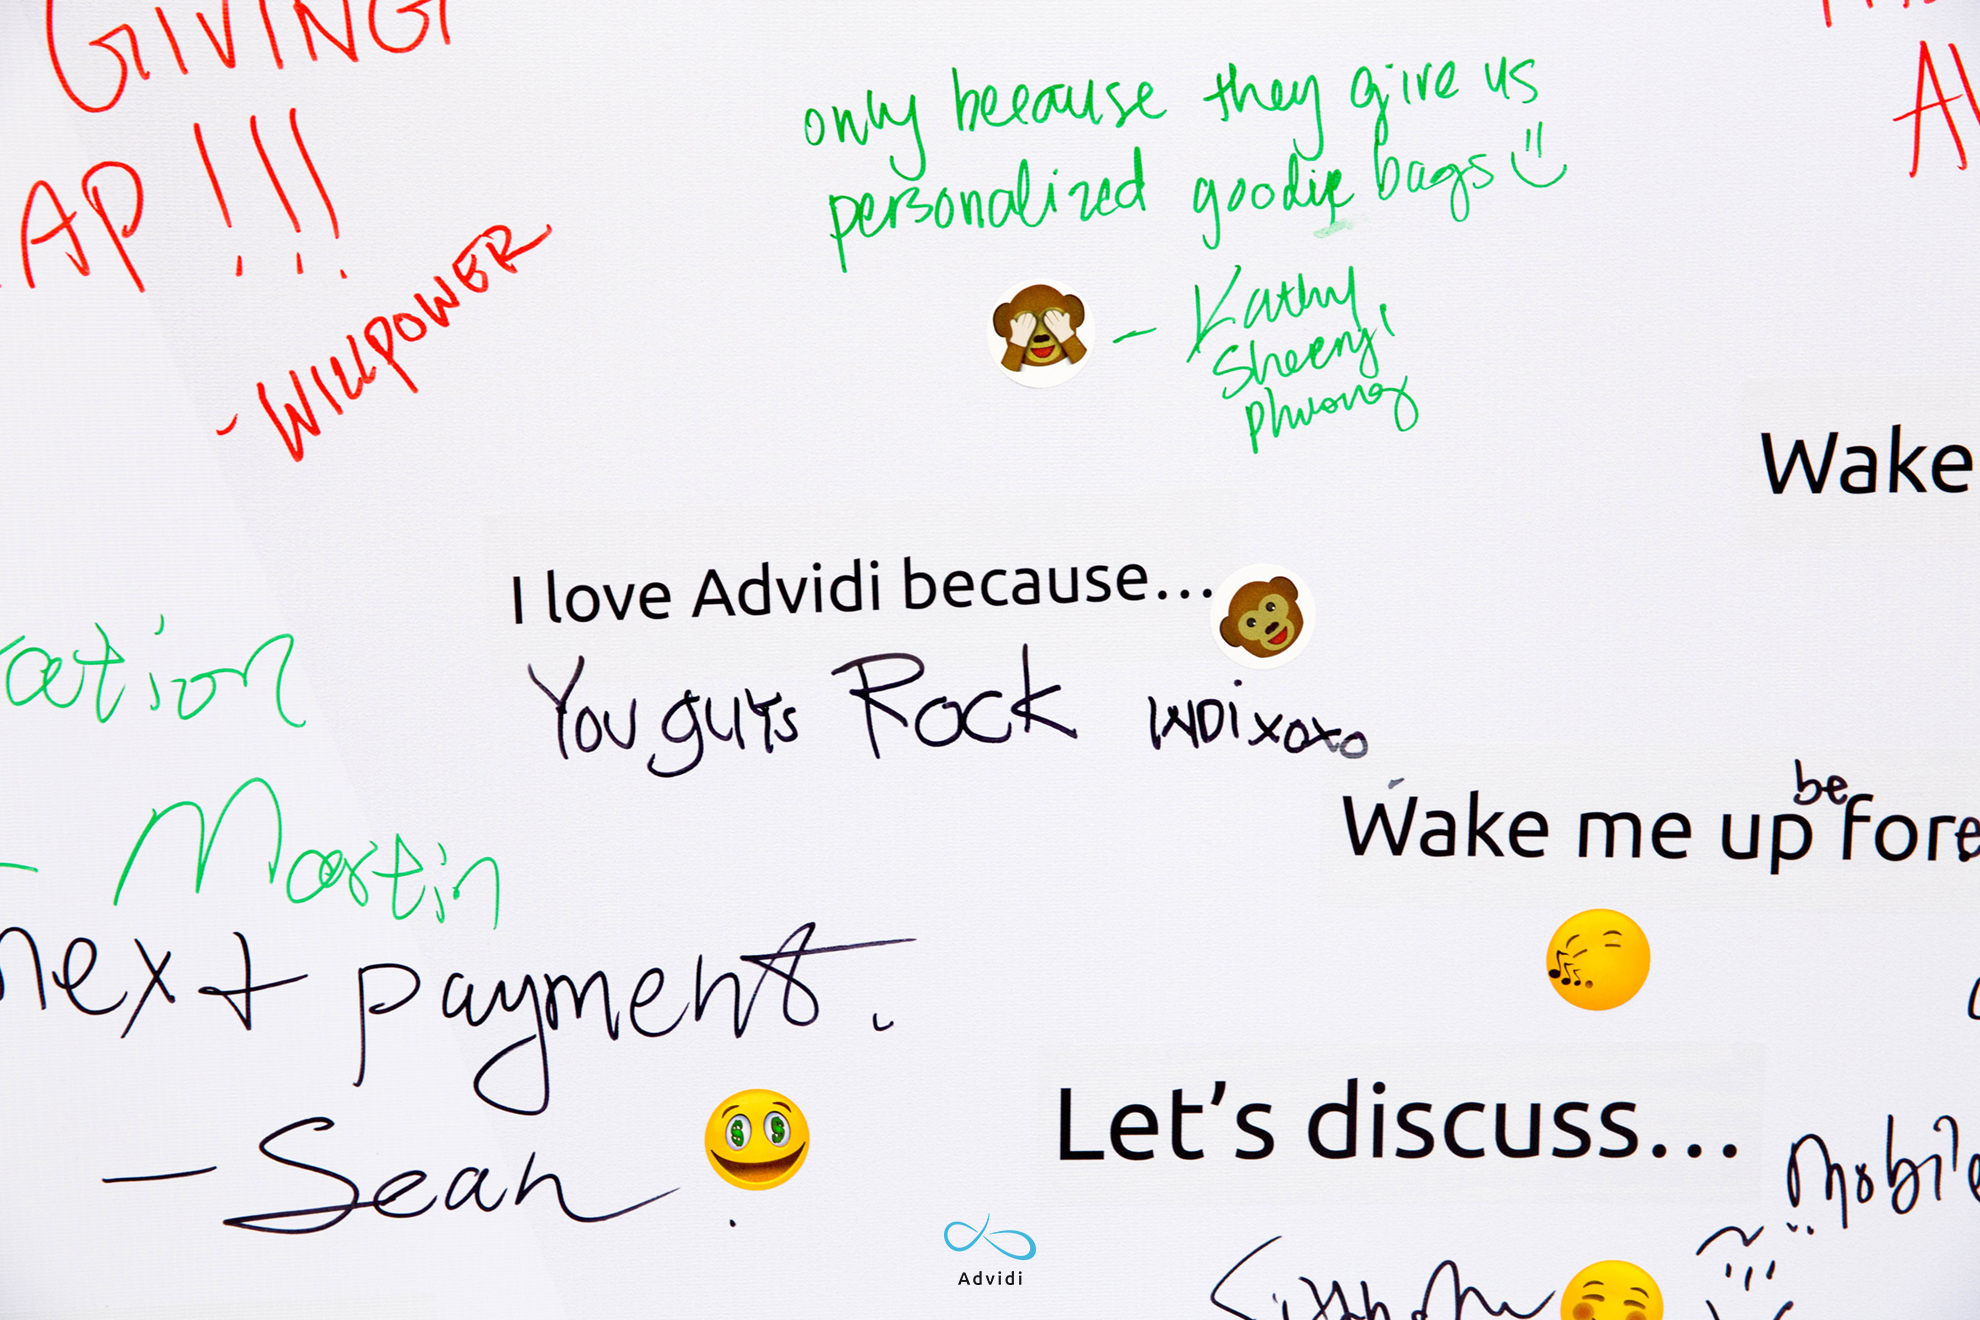 GIVING
AP!!!
- WILLPOWER
only because they give us
personalized goodie bags
- Kathy,
Sheeny,
Phuong
Wake
I love Advidi because...
You guys Rock INDIxoxo
ration
- Martin
be
Wake me up fore
next payment.
- Sean.
Let's discuss...
Mobile
Advidi